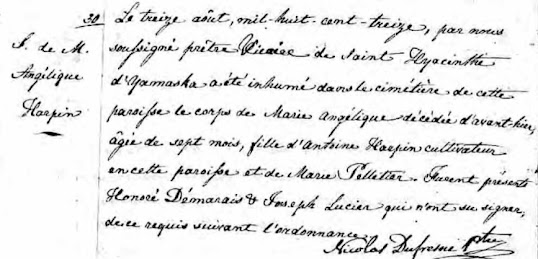 30
S. de M.
Angélique
Harpin
Le treize août, mil-huit-cent-treize, par nous
soussigné prêtre Vicaire de Saint Hyacinthe
d'Yamaska a été inhumé dans le cimétière de cette
paroisse le corps de Marie Angélique décédée d'avant-hier,
âgée de sept mois, fille d'Antoine Harpin cultivateur
en cette paroisse et de Marie Pelletier. Furent présents
Honoré Démarais & Joseph Lucier qui n'ont su signer,
de ce requis suivant l'ordonnance.
Nicolas Dufresne Ptre